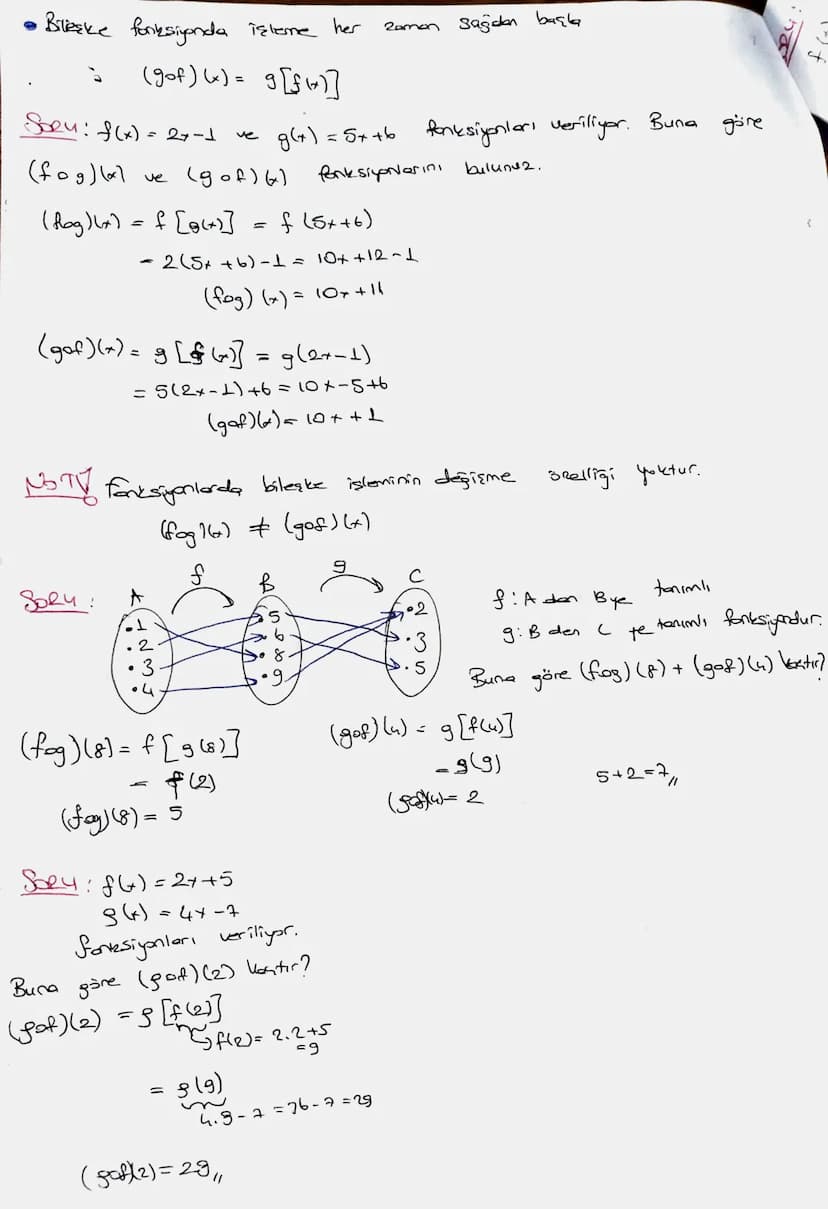 • Bileşke fonksiyonda işleme her zaman sağdan başla
(gof)(x) = g[f(x)]
Soru: f(x) = 2x-1 ve g(x) = 5x+6 fonksiyonları veriliyor. Buna göre
(fog)(x) ve (gof)(x) fonksiyonlarını bulunuz.
(fog)(x) = f[g(x)] = f(5x+6)
= 2(5x+6)-1 = 10x+12-1
(fog)(x) = 10x+11
(gof)(x) = g[f(x)] = g(2x-1)
= 5(2x-1)+6 = 10x-5+6
(gof)(x) = 10x+1
NOT! Fonksiyonlarda bileşke işleminin değişme özelliği yoktur.
(fog)(x) ≠ (gof)(x)
Soru: A f B g C
•1 •5 •2
•2 •6 •3
•3 •8 •5
•4 •9
f: A dan B ye tanımlı
g: B den C ye tanımlı fonksiyondur.
Buna göre (fog)(8) + (gof)(4) kaçtır?
(fog)(8) = f[g(8)]
= f(2)
(fog)(8) = 5
(gof)(4) = g[f(4)]
= g(9)
(gof)(4) = 2
5+2=7,,
Soru: f(x) = 2x+5
g(x) = 4x-7
fonksiyonları veriliyor.
Buna göre (gof)(2) kaçtır?
(gof)(2) = g[f(2)]
f(2) = 2.2+5
=9
= g(9)
4.9-7 = 36-7 = 29
(gof)(2) = 29,,